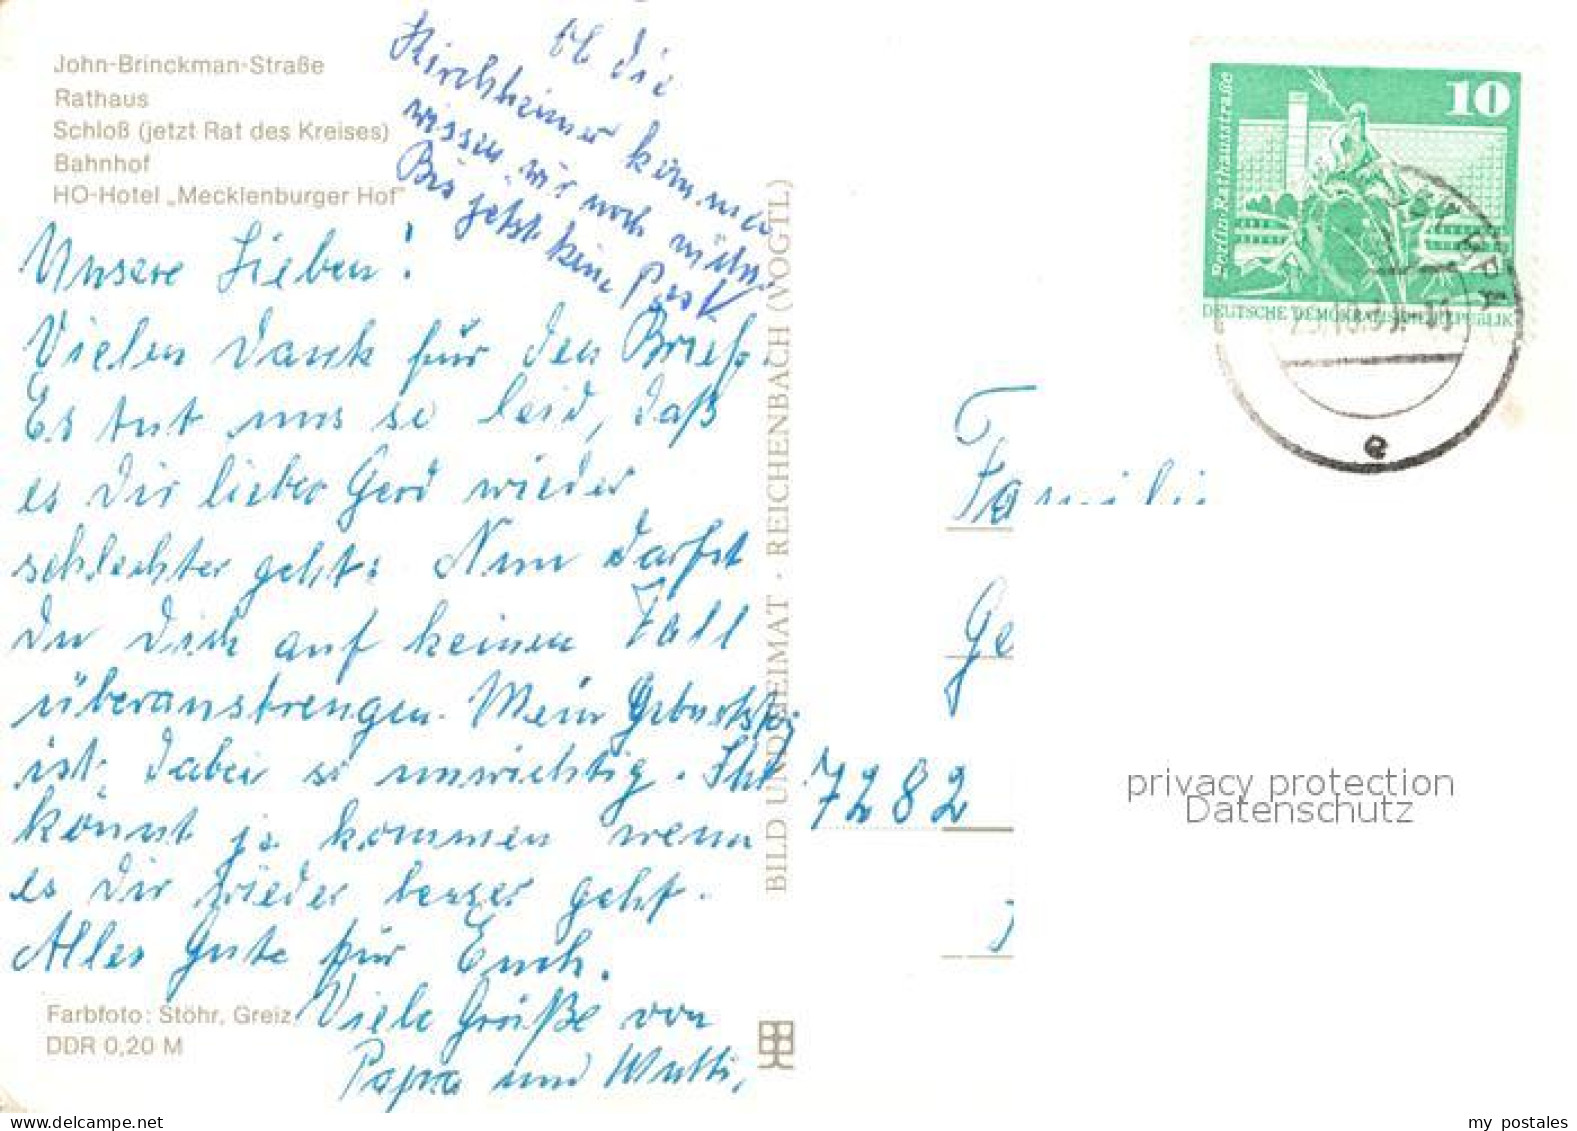 John-Brinckman-Straße
Rathaus
Schloß (jetzt Rat des Kreises)
Bahnhof
HO-Hotel „Mecklenburger Hof"
Ob die
Kirchheimer kommen
wissen wir noch nicht.
Bis jetzt keine Post
Unsere Lieben!
Vielen Dank für den Brief.
Es tut uns so leid, daß
es Dir lieber Gerd wieder
schlechter geht. Nun darfst
Du Dich auf keinen Fall
überanstrengen. Mein Geburtstag
ist dabei so unwichtig. Ihr
könnt ja kommen wenn
es Dir wieder besser geht.
Alles Gute für Euch.
Viele Grüße von
Papa und Mutti.
Farbfoto: Stöhr, Greiz
DDR 0,20 M
BILD UND HEIMAT · REICHENBACH (VOGTL)
10
Berlin-Rathausstraße
DEUTSCHE DEMOKRATISCHE REPUBLIK
e
Familie
Ge
7282
privacy protection
Datenschutz
www.delcampe.net
my_postales